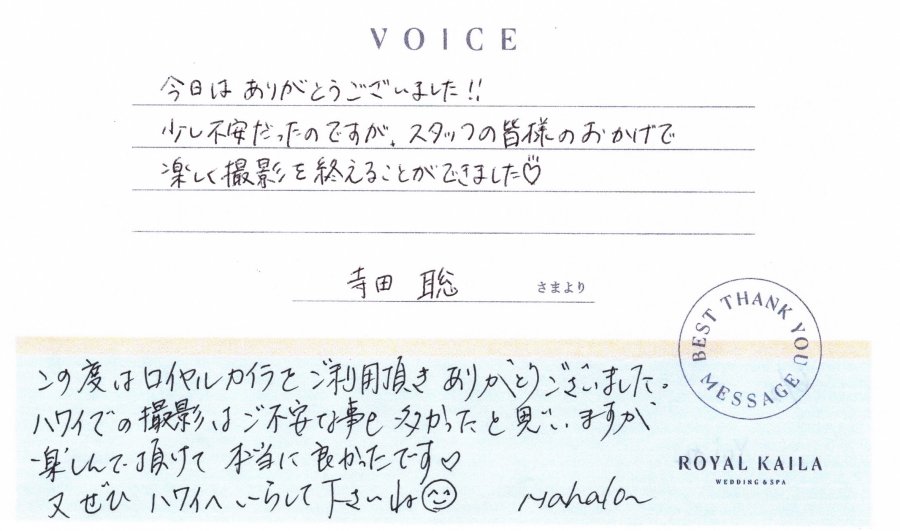 VOICE
今日は ありがとうございました!!
少し不安だったのですが、スタッフの皆様のおかげで
楽しく撮影を終えることができました♡
寺田 聡
さまより
BEST THANK YOU MESSAGE
この度はロイヤルカイラをご利用頂き ありがとうございました。
ハワイでの撮影はご不安な事も多かったと思いますが
楽しんで頂けて 本当に良かったです♡
又ぜひ ハワイへいらして下さいね☺ Mahalo
ROYAL KAILA
WEDDING & SPA